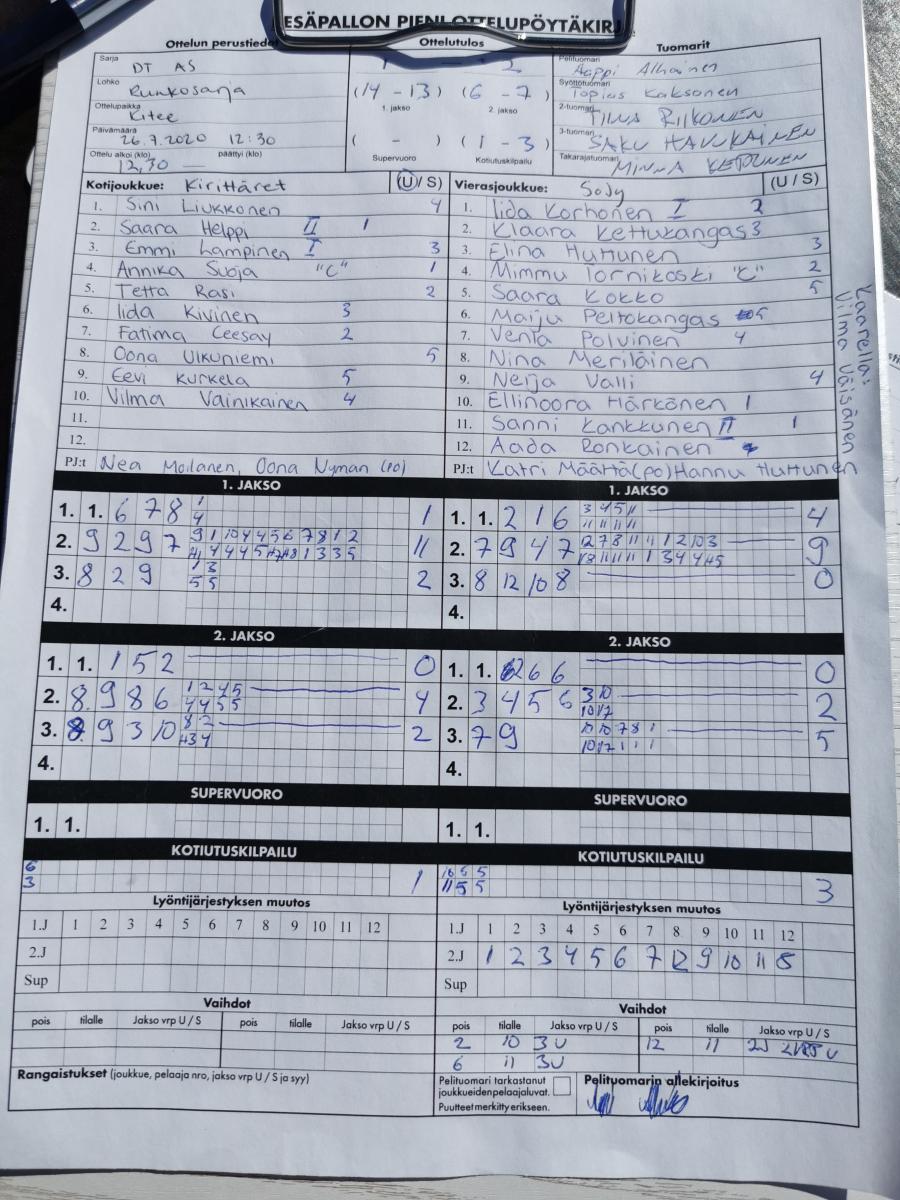 ESÄPALLON PIENI OTTELUPÖYTÄKIRJ
Ottelun perustiedot
Ottelutulos
Tuomarit
Sarja
DT AS
Lohko
Runkosarja
Ottelupaikka
Kitee
Päivämäärä
26.7.2020 12:30
Ottelu alkoi (klo) päättyi (klo)
12,30 —
1 — 2
(14 - 13) (6 - 7)
1. jakso 2. jakso
( - ) (1 - 3)
Supervuoro Kotiutuskilpailu
Pelituomari
Aappi Alhainen
Syöttötuomari
Topias Kaksonen
2-tuomari
TIINA RIIKONEN
3-tuomari
SAKU HAVUKAINEN
Takarajatuomari
MINNA KETOLINEN
Kotijoukkue: Kirittäret (U / S)
1. Sini Liukkonen 4
2. Saara Helppi II 1
3. Emmi Lampinen I 3
4. Annika Suoja "C" 1
5. Tetta Rasi 2
6. Iida Kivinen 3
7. Fatima Ceesay 2
8. Oona Ulkuniemi 5
9. Eevi Kurkela 5
10. Vilma Vainikainen 4
11.
12.
PJ:t Nea Moilanen, Oona Nyman (po)
Vierasjoukkue: SoJy (U / S)
1. Iida Korhonen I 2
2. Klaara Kettukangas 3
3. Elina Huttunen 3
4. Mimmu Tornikoski "C" 2
5. Saara Kokko 5
6. Maiju Peltokangas 5
7. Venla Polvinen 4
8. Nina Meriläinen
9. Nerja Valli 4
10. Ellinoora Härkönen 1
11. Sanni Kankkunen II 1
12. Aada Ronkainen
PJ:t Katri Määttä(po) Hannu Huttunen
Kaarella:
Vilma Väisänen
1. JAKSO
1. 1. 6 7 8 1 1
4
2. 9 2 9 7 9 1 10 4 4 5 6 7 8 1 2 11
3. 8 2 9 1 3 2
5 5
4.
1. JAKSO
1. 1. 2 1 6 3 4 5 11 4
11 11 11 11
2. 7 9 4 7 12 7 8 11 11 1 2 10 3 9
3. 8 12 10 8 0
4.
2. JAKSO
1. 1. 1 5 2 0
2. 8. 9 8 6 1 2 4 5 4
4 4 5 5
3. 8. 9 3 10 8 2 2
4.
2. JAKSO
1. 1. 2 6 6 0
2. 3 4 5 6 3 10 2
10 12
3. 7 9 10 10 7 8 1 5
10 12 1 1 1
4.
SUPERVUORO
1. 1.
SUPERVUORO
1. 1.
KOTIUTUSKILPAILU
6 1
3
KOTIUTUSKILPAILU
10 5 5 3
11 5 5
Lyöntijärjestyksen muutos
1.J 1 2 3 4 5 6 7 8 9 10 11 12
2.J
Sup
Lyöntijärjestyksen muutos
1.J 1 2 3 4 5 6 7 8 9 10 11 12
2.J 1 2 3 4 5 6 7 12 9 10 11 8
Sup
Vaihdot
pois tilalle Jakso vrp U / S pois tilalle Jakso vrp U / S
Vaihdot
pois tilalle Jakso vrp U / S pois tilalle Jakso vrp U / S
2 10 3U 12 11 2J
6 11 3U
Rangaistukset (joukkue, pelaaja nro, jakso vrp U / S ja syy)
Pelituomari tarkastanut
joukkueiden pelaajaluvat.
Puutteet merkitty erikseen.
Pelituomarin allekirjoitus